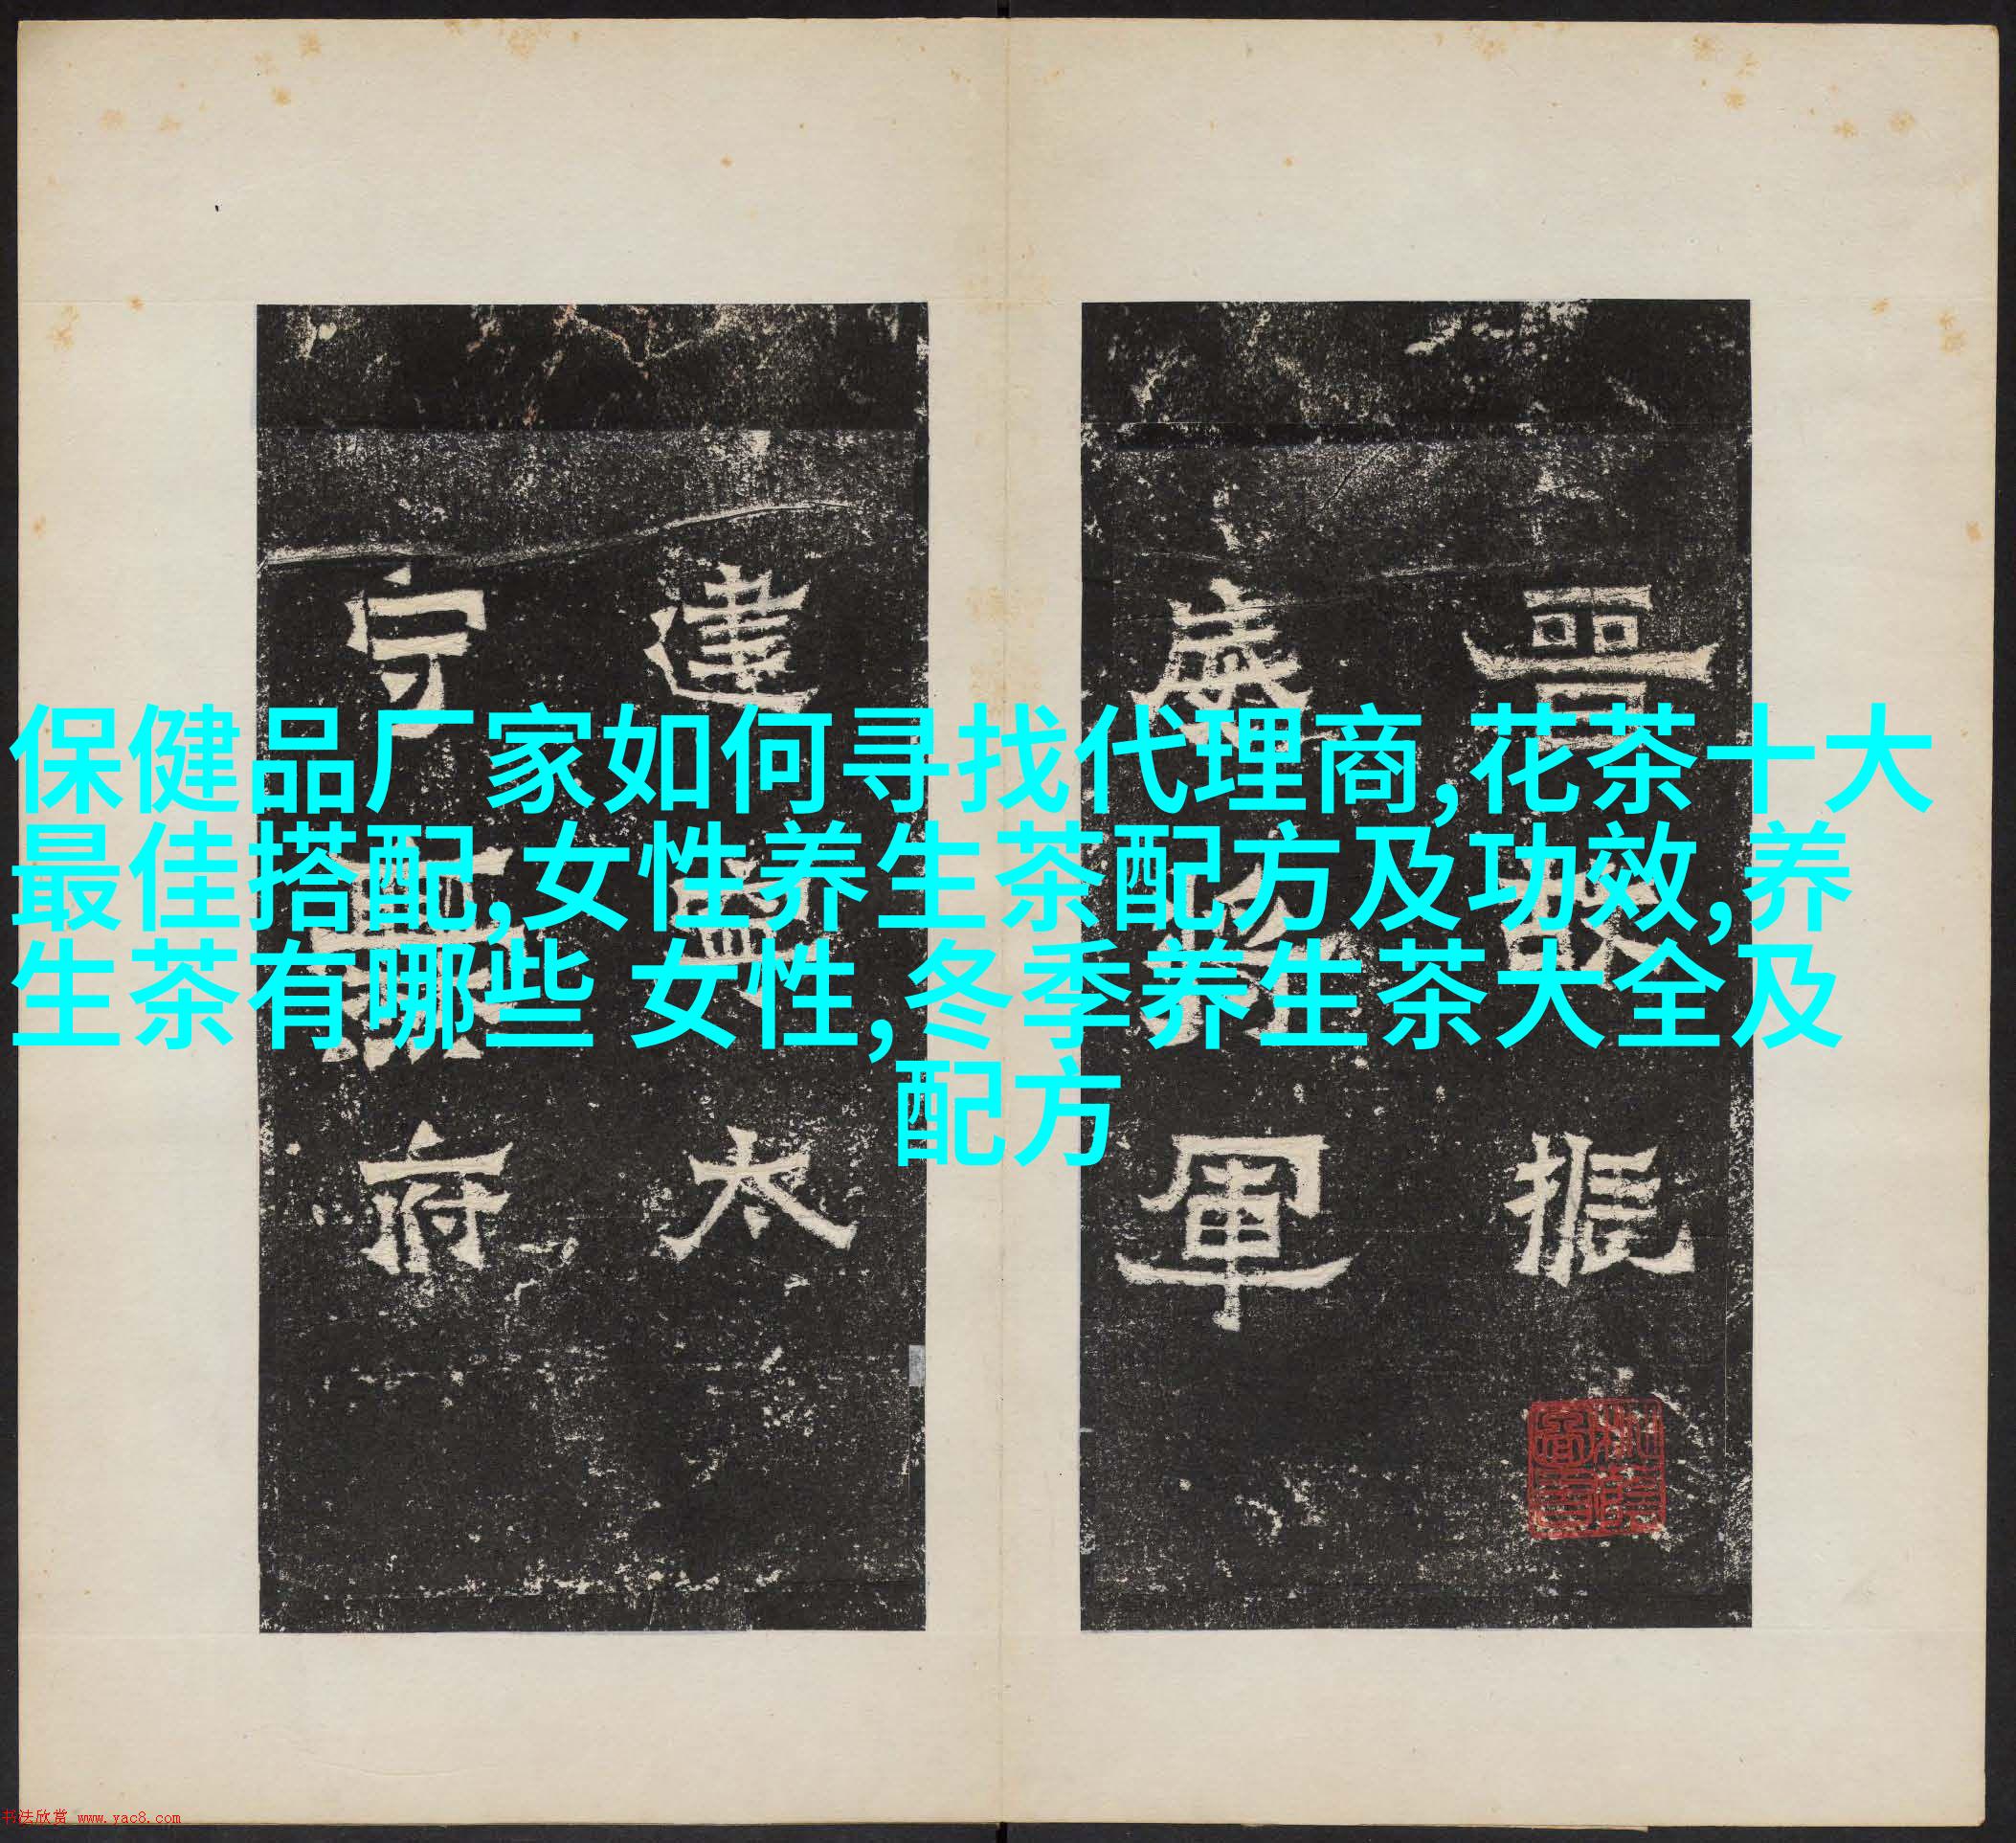 保健品厂家如何寻找代理商,花茶十大
最佳搭配,女性养生茶配方及功效,养
生茶有哪些 女性,冬季养生茶大全及
配方
晉振
威軍
建太
守府
书法欣赏 www.yac8.com